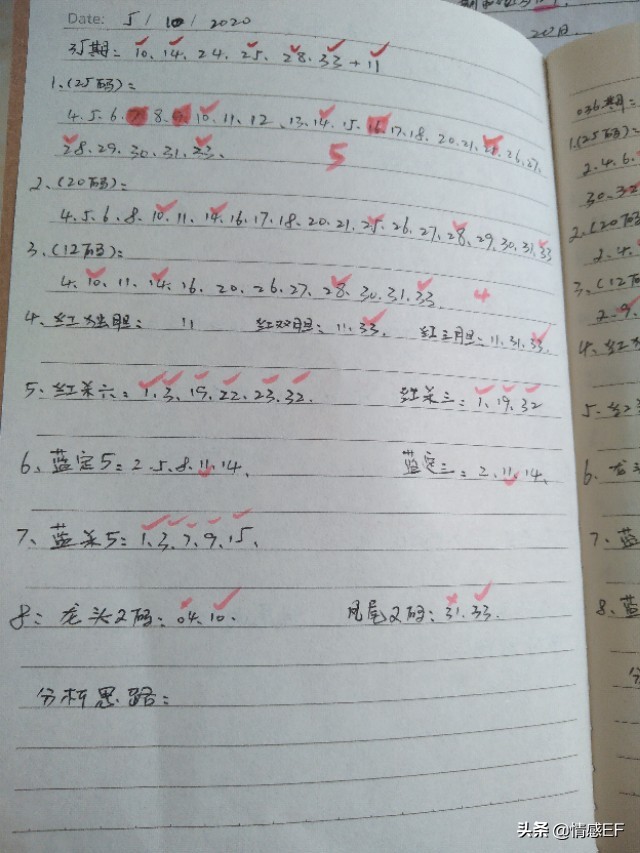 Date: 5 / 10 / 2020
35期: 10、14、24、25、28、33+11
1、(25码):
4、5、6、8、10、11、12、13、14、15、16、17、18、20、21、25、26、27、
28、29、30、31、33、
5
2、(20码):
4、5、6、8、10、11、14、16、17、18、20、21、25、26、27、28、29、30、31、33
3、(12码):
4、10、11、14、16、20、26、27、28、30、31、33、 4
4、红独胆: 11 红双胆: 11、33、 红三胆: 11、31、33、
5、红杀六: 1、3、19、22、23、32、 红杀三: 1、19、32
6、蓝定5: 2、5、8、11、14、 蓝定三: 2、11、14、
7、蓝杀5: 1、3、7、9、15、
8: 龙头2码: 04、10、 凤尾2码: 31、33、
分析思路:
036期:
1.(25码):
2、4、6、
30、32
2、(20码
2、4、
3、(12码
2、9、
4、红
5、红
6、
7、蓝
8、蓝
头条 @情感EF